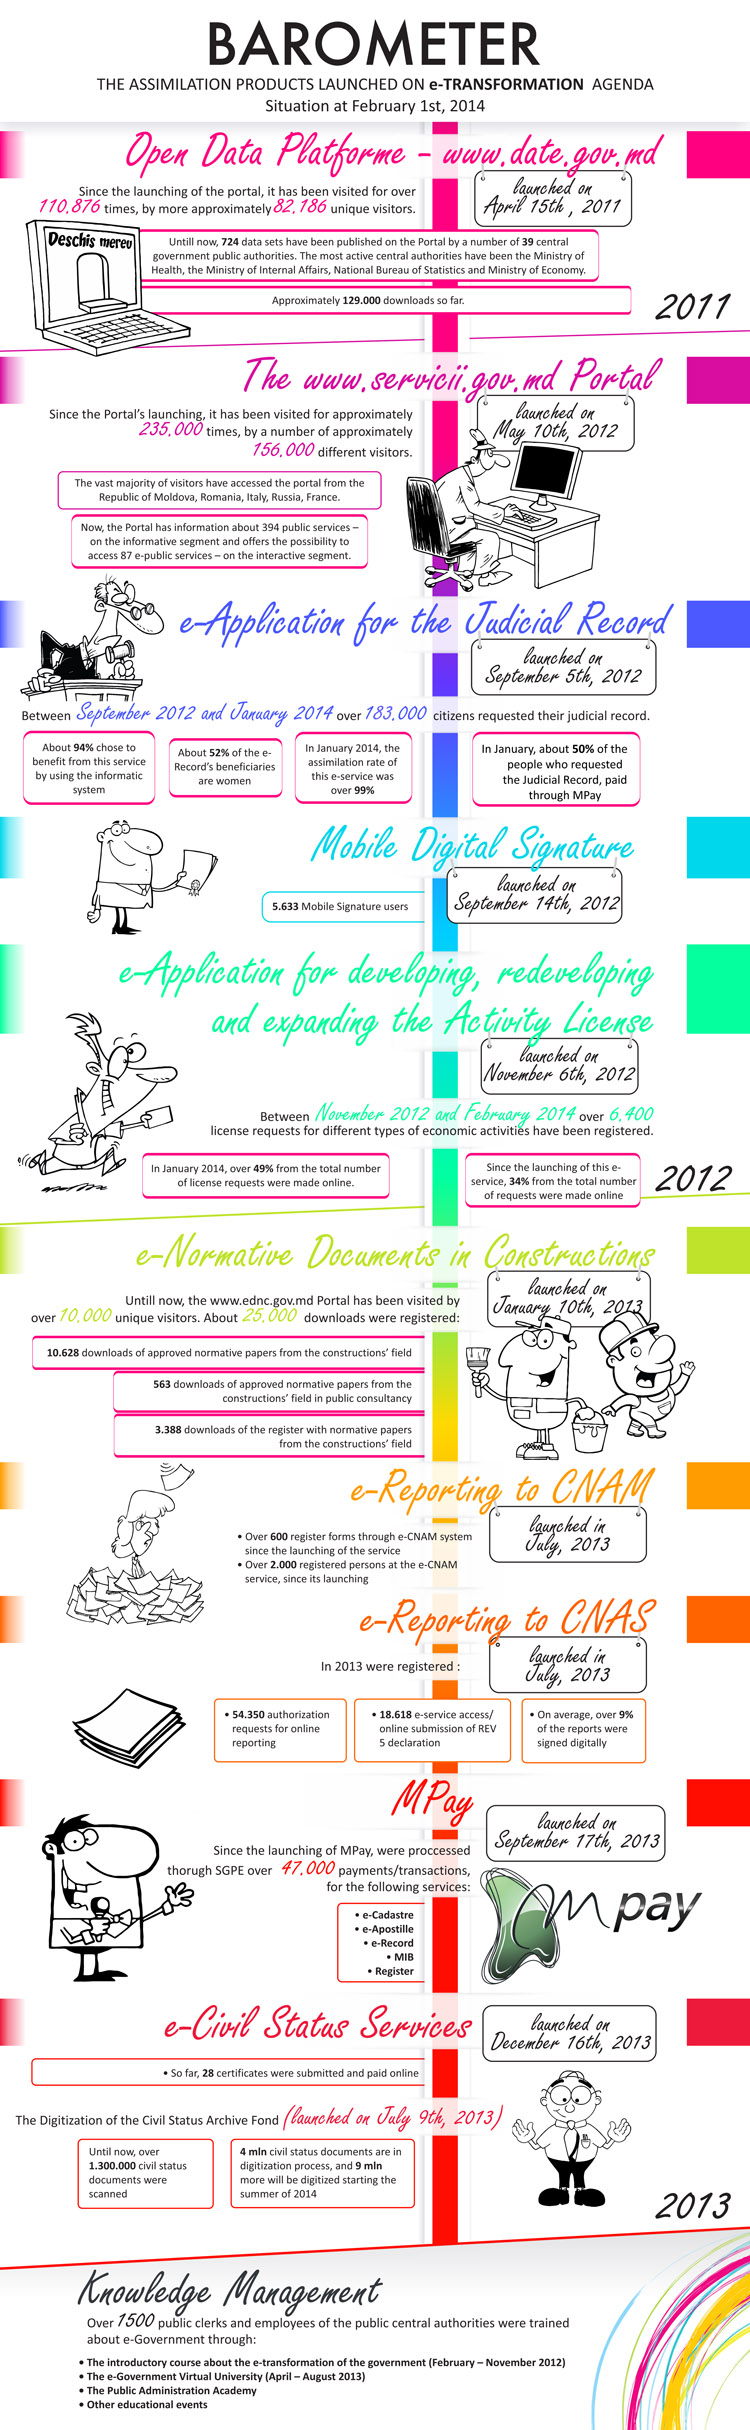 BAROMETER
THE ASSIMILATION PRODUCTS LAUNCHED ON e-TRANSFORMATION AGENDA
Situation at February 1st, 2014
Open Data Platforme - www.date.gov.md
launched on
April 15th, 2011
Since the launching of the portal, it has been visited for over
110,876 times, by more approximately 82,186 unique visitors.
Deschis mereu
Untill now, 724 data sets have been published on the Portal by a number of 39 central
government public authorities. The most active central authorities have been the Ministry of
Health, the Ministry of Internal Affairs, National Bureau of Statistics and Ministry of Economy.
Approximately 129.000 downloads so far.
2011
The www.servicii.gov.md Portal
launched on
May 10th, 2012
Since the Portal's launching, it has been visited for approximately
235,000 times, by a number of approximately
156,000 different visitors.
The vast majority of visitors have accessed the portal from the
Republic of Moldova, Romania, Italy, Russia, France.
Now, the Portal has information about 394 public services –
on the informative segment and offers the possibility to
access 87 e-public services – on the interactive segment.
e-Application for the Judicial Record
launched on
September 5th, 2012
Between September 2012 and January 2014 over 183,000 citizens requested their judicial record.
About 94% chose to
benefit from this service
by using the informatic
system
About 52% of the e-
Record's beneficiaries
are women
In January 2014, the
assimilation rate of
this e-service was
over 99%
In January, about 50% of the
people who requested
the Judicial Record, paid
through MPay
Mobile Digital Signature
launched on
September 14th, 2012
5.633 Mobile Signature users
e-Application for developing, redeveloping
and expanding the Activity License
launched on
November 6th, 2012
Between November 2012 and February 2014 over 6,400
license requests for different types of economic activities have been registered.
In January 2014, over 49% from the total number
of license requests were made online.
Since the launching of this e-
service, 34% from the total number
of requests were made online
2012
e-Normative Documents in Constructions
launched on
January 10th, 2013
Untill now, the www.ednc.gov.md Portal has been visited by
over 10,000 unique visitors. About 25,000 downloads were registered:
10.628 downloads of approved normative papers from the constructions' field
563 downloads of approved normative papers from the
constructions' field in public consultancy
3.388 downloads of the register with normative papers
from the constructions' field
e-Reporting to CNAM
launched in
July, 2013
• Over 600 register forms through e-CNAM system
since the launching of the service
• Over 2.000 registered persons at the e-CNAM
service, since its launching
e-Reporting to CNAS
launched in
July, 2013
In 2013 were registered :
• 54.350 authorization
requests for online
reporting
• 18.618 e-service access/
online submission of REV
5 declaration
• On average, over 9%
of the reports were
signed digitally
MPay
launched on
September 17th, 2013
Since the launching of MPay, were proccessed
thorugh SGPE over 47,000 payments/transactions,
for the following services:
• e-Cadastre
• e-Apostille
• e-Record
• MIB
• Register
Mpay
e-Civil Status Services
launched on
December 16th, 2013
• So far, 28 certificates were submitted and paid online
The Digitization of the Civil Status Archive Fond (launched on July 9th, 2013)
Until now, over
1.300.000 civil status
documents were
scanned
4 mln civil status documents are in
digitization process, and 9 mln
more will be digitized starting the
summer of 2014
2013
Knowledge Management
Over 1500 public clerks and employees of the public central authorities were trained
about e-Government through:
• The introductory course about the e-transformation of the government (February – November 2012)
• The e-Government Virtual University (April – August 2013)
• The Public Administration Academy
• Other educational events